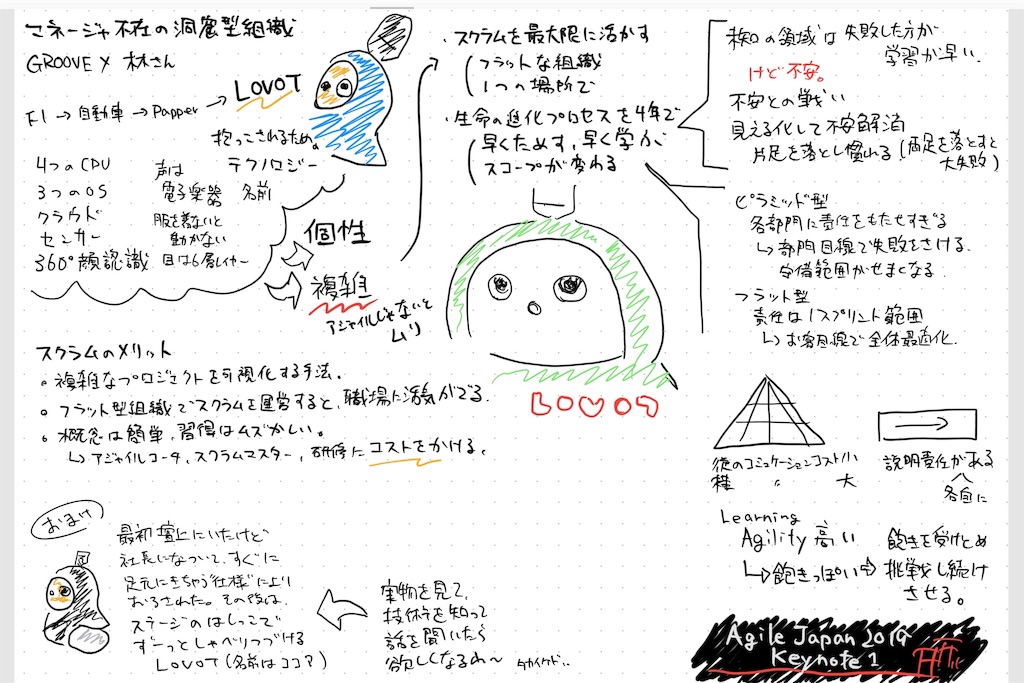 マネージャ不在の洞窟型組織
GROOVE X 林さん
F1 → 自動車 → Papper → LOVOT
抱っこされるため。
テクノロジー
4つのCPU
3つのOS
クラウド
センサー
360°顔認識
声は
電子楽器
名前
服を着ないと
動かない
目は6層レイヤー
個性
複雑
アジャイルじゃないと
ムリ
・スクラムを最大限に活かす
フラットな組織
1つの場所で
・生命の進化プロセスを4年で
早くためす、早く学ぶ
スコープが変わる
LOVOT
未知の領域は失敗した方が
学習が早い
けど不安。
不安との戦い
見える化して不安解消
片足を落とし慣れる(両足を落とすと
大失敗)
ピラミッド型
各部門に責任をもたせすぎる
↳ 部門目線で失敗をさける。
守備範囲がせまくなる
フラット型
責任は1スプリント範囲
↳ お客目線で全体最適化。
縦のコミュケーションコスト小
横 〃 大
説明責任がある
各自に
Learning
Agility 高い
↳ 飽きっぽい ⇨
飽きを受けとめ
挑戦し続け
させる。
スクラムのメリット
・複雑なプロジェクトを可視化する手法。
・フラット型組織でスクラムを運営すると、職場に活気がでる。
・概念は簡単、習得はムズかしい。
↳ アジャイルコーチ、スクラムマスター、研修にコストをかける。
おまけ
最初壇上にいたけど
社長になついて、すぐに
足元にきちゃう仕様により
おろされた。その後は、
ステージのはしっこで
ずーっとしゃべりつづける
LOVOT(名前はココア)
実物を見て、
技術を知って
話を聞いたら
欲しくなるわ〜
タカイケド..
Agile Japan 2019
Keynote 1